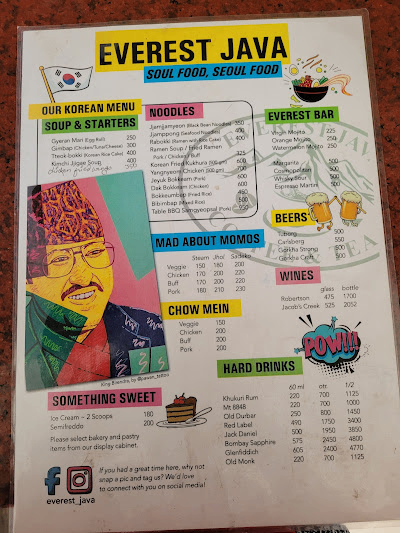 EVEREST JAVA
SOUL FOOD, SEOUL FOOD
OUR KOREAN MENU
SOUP & STARTERS
Gyeran Mari (Egg Roll) 250
Gimbap (Chicken/Tuna/Cheese) 300
Kimchi Jjigae Soup 400
NOODLES
Jjamjjamyeon (Black Bean Noodles) 350
Jjamppong (Seafood Noodles) 400
Rabokki (Ramen with Rice Cake) 400
Ramen Soup / Fried Ramen
Pork / Chicken / Buff 325
Korean Fried Kukhura (500 gm) 600
Yangnyeom Chicken (500 gm) 700
Jeyuk Bokkeam (Pork)
Dak Bokkeam (Chicken)
Bokkeumbap (Fried Rice)
Bibimbap (Mixed Rice)
Table BBQ Samgyeopsal (Pork) 950
EVEREST BAR
Virgin Mojito 225
Orange Mojito
Watermelon Mojito
Margarita
Cosmopolitan 500
Whisky Sour 500
Espresso Martini 500
BEERS
Tuborg 500
Carlsberg 550
Gorkha Strong 500
Gorkha Craft
MAD ABOUT MOMOS
Steam Jhol Sadeko
Veggie 150 180 200
Chicken 170 200 220
Buff 170 200 220
Pork 180 210 230
WINES
glass bottle
Robertson 475 1700
Jacob's Creek 525 2052
CHOW MEIN
Veggie 150
Chicken 200
Buff 200
Pork 200
POW!!!
King Birendra, by @pawan_tattoo
SOMETHING SWEET
Ice Cream – 2 Scoops 180
Semifreddo 200
Please select bakery and pastry
items from our display cabinet.
HARD DRINKS
60 ml qtr 1/2
Khukuri Rum 220 700 1125
Mt 8848 220 700 1000
Old Durbar 250 800 1450
Red Label 490 1750 3400
Jack Daniel 500 1950 3850
Bombay Sapphire 575 2450 4800
Glenfiddich 605 2400 4770
Old Monk 220 700 1125
If you had a great time here, why not
snap a pic and tag us? We'd love
to connect with you on social media!
everest_java